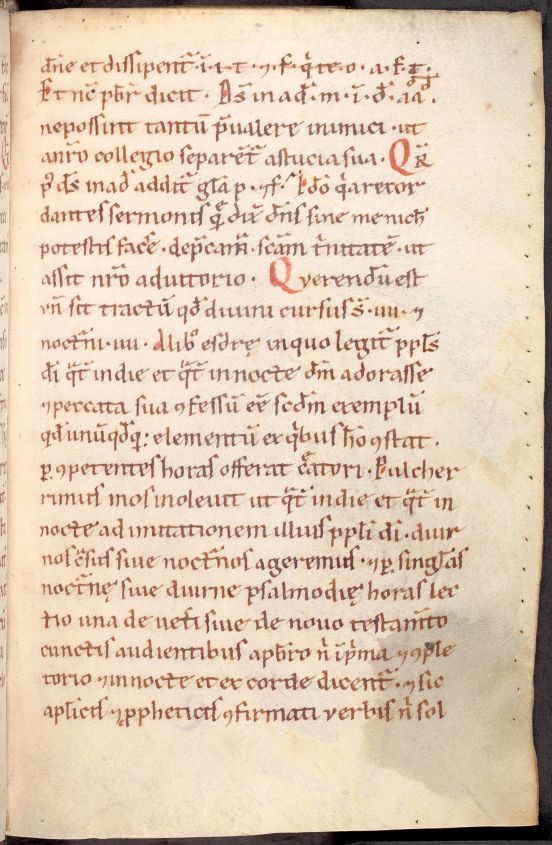 dn̄e et dissipent᷑ · ī · i · t · ⁊ · f · q̄ · te · o · a · f · g ·
Et nc̄ pbr̄ dicit · Ds̄ in ad̄ · m · ī · d̄ · aā ·
ne possint tantū p̄ualere inimici · ut
a nr̄o collegio separēt astucia sua · Q
p᷒ ds̄ in ad̄ addit᷑ gl̄a p · ⁊ f · Ido q̄a recor
dantes sermonis q̄ dīu dn̄s sine me nich̄
potestis facē · dep̄camr̄ · scām t̄nitatē · ut
assit nr̄o adiutorio · Querendū est
vn̄ sit tractū qd̄ diurni cursus s̄ · iiii · ⁊
noct̄ni · iiii · A libº esdrę in quo legit᷑ pplm̄
di q̄t᷑ in die et q̄t᷑ in nocte dm̄ adorasse
⁊ peccata sua ꝯfessū eē̄ scdm̄ exemplū
qd̄ unūqd̄q; elementū ex q̄bus hō ꝯstat ·
p̱ ꝯpetentes horas offerat c̄atori · Pulcher
rimus mos inoleuit ut q̄t᷑ in die et q̄t᷑ in
nocte ad imitationem illius ppli di · diur
nos c̄sus siue noct̄nos ageremus · ⁊ p̱ singl̄as
noct̄nę siue diurnę psalmodię horas lec
tio una de uet̄i siue de nouo testam̄to
cunctis audientibus a pbr̄o n̄ ip̄ma ⁊ ꝯple
torio ⁊ in nocte et ex corde dicent᷑ · ⁊ sic
apl̄icis ⁊ ppheticis ꝯfirmati verbis n̄ sol